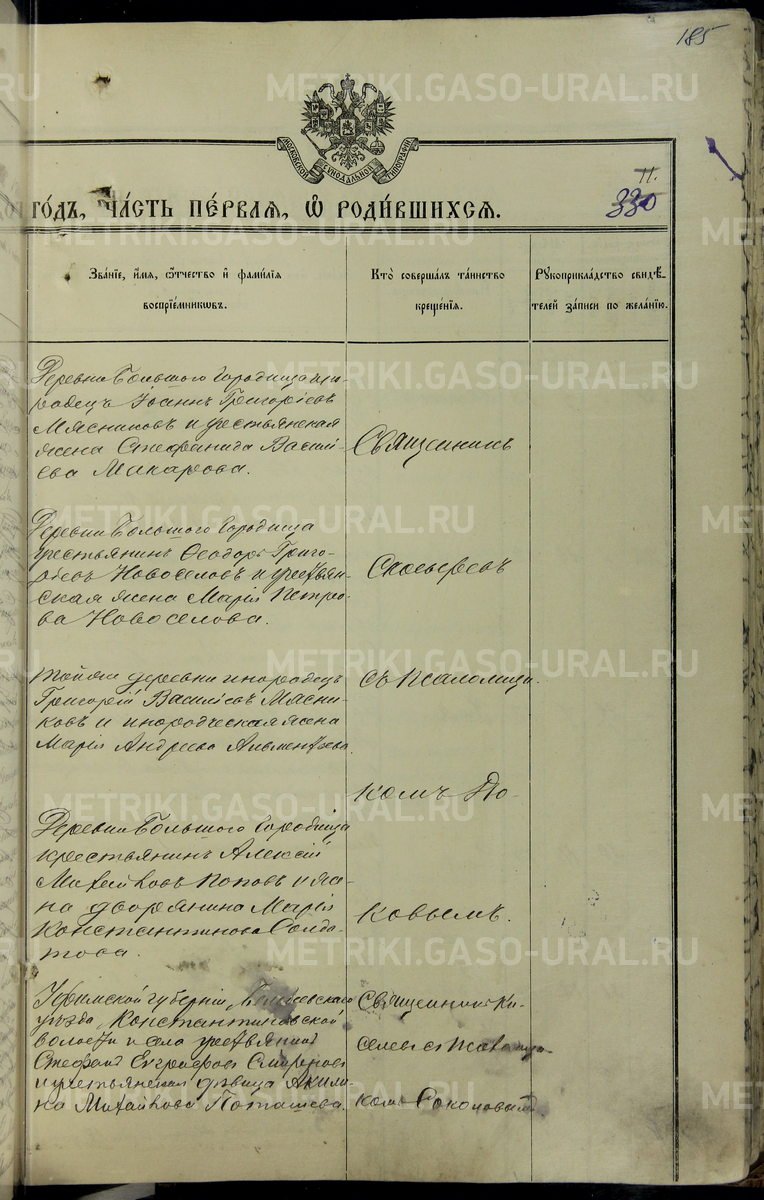 185
МОСКОВСКОЙ СУНОДАЛЬНОЙ ТИПОГРАФІИ
11.
330
го́дъ, ча́сть пе́рвая, ѡ҆ роди́вшихся.
Зва́нїе, и҆́мя, ѻ҆́тчество и҆ фами́лїя
воспрїе́мникѡвъ.
Кто̀ соверша́лъ та́инство
креще́нїя.
Рꙋкоприкла́дство свидѣ́-
телей за́писи по жела́нїю.
Деревни Большого Городища ино-
родецъ Іоаннъ Григоріевъ
Мясниковъ и крестьянская
жена Стефанида Васил-
ева Макарова.
Священникъ
Деревни Большого Городища
крестьянинъ Ѳеодоръ Григо-
ріевъ Новоселовъ и крестьян-
ская жена Марія Петро-
ва Новоселова.
Скосыревъ
тойже деревни инородецъ
Григорій Василіевъ Мясни-
ковъ и инородческая жена
Марія Андреева
съ псаломщи-
комъ По-
Деревни Большого Городища
крестьянинъ Алексій
Михайловъ Поповъ и же-
на дворянина Марія
Константинова Солда-
това.
ковымъ.
Уфимской губерніи,
уѣзда, Константиновской
волости и села крестьянинъ
Стефанъ Евграфовъ Смирновъ
и крестьянская дѣвица Акили-
на Михайлова Поташева.
Священникъ Ки-
селевъ съ псаломщи-
комъ Соколовымъ
METRIKI.GASO-URAL.RU